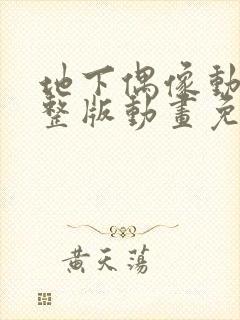 地下偶像動
整版動畫免
黃天蕩